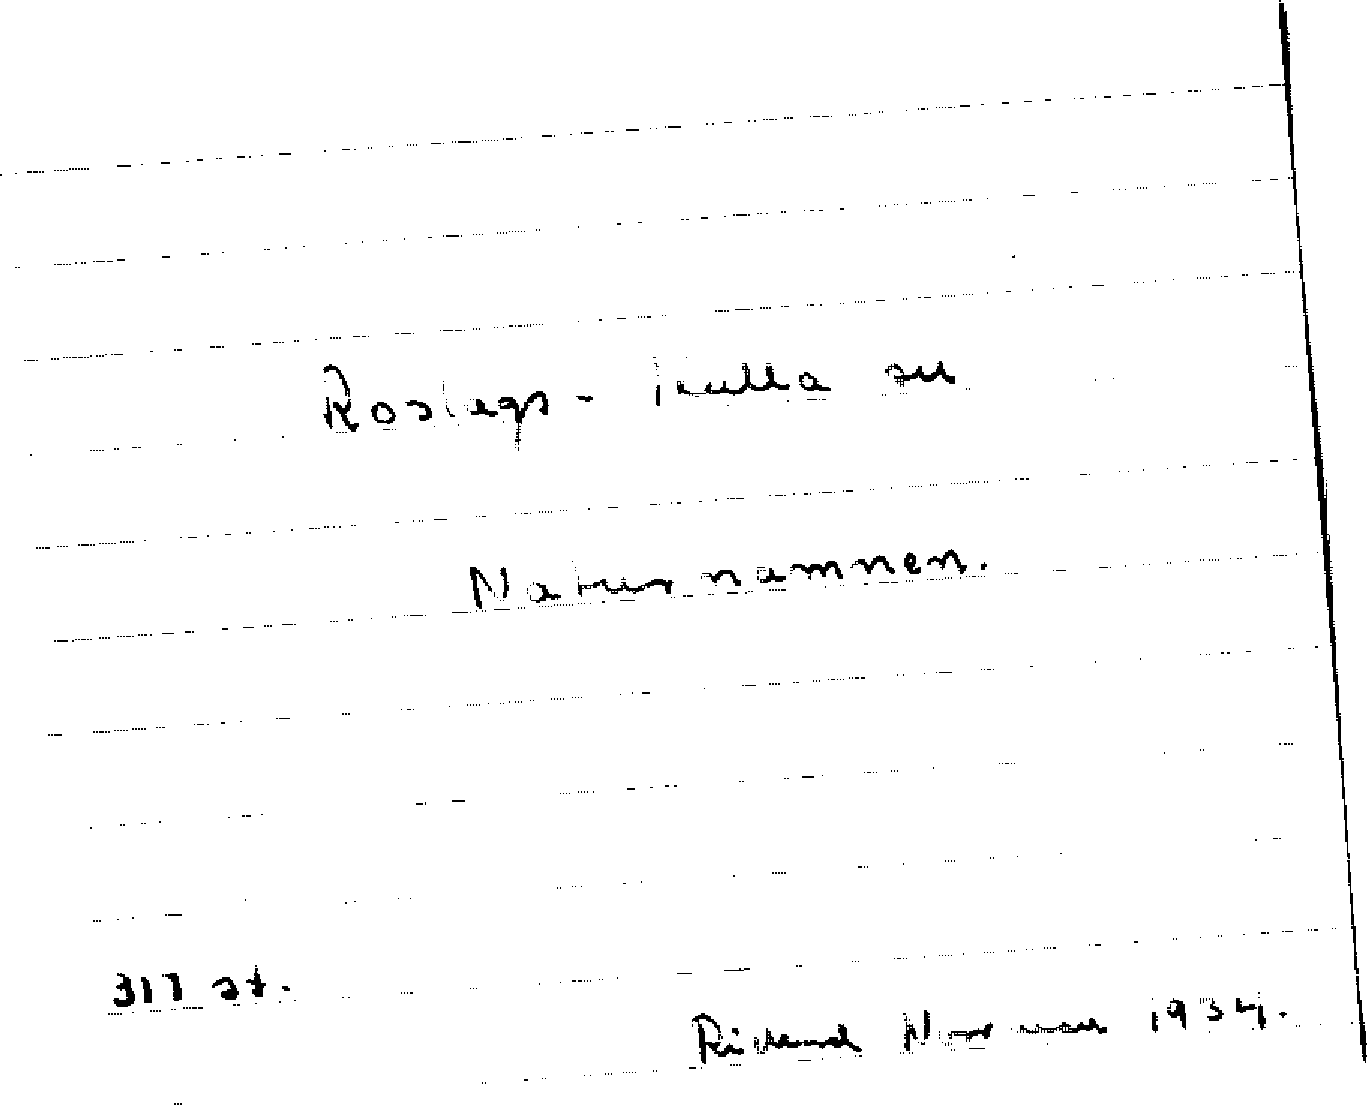 Roslags-kulla sn
Naturnamnen.
317 st.
Rickard Norman 1934.